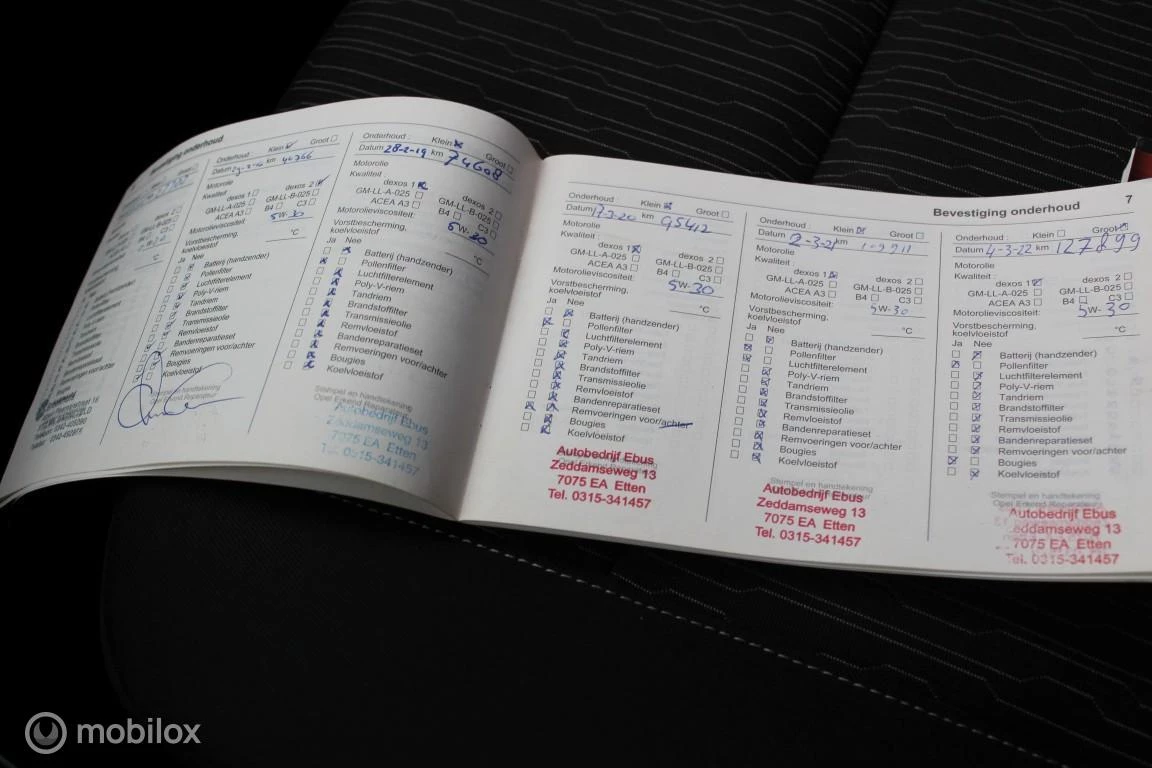 Bevestiging onderhoud
Onderhoud : Klein Groot
Datum km 44766
Motorolie
Kwaliteit : dexos 1 dexos 2
GM-LL-A-025 GM-LL-B-025
ACEA A3 B4 C3
Motorolieviscositeit: 5W-30
Vorstbescherming,
koelvloeistof °C
Ja Nee
Batterij (handzender)
Pollenfilter
Luchtfilterelement
Poly-V-riem
Tandriem
Brandstoffilter
Transmissieolie
Remvloeistof
Bandenreparatieset
Remvoeringen voor/achter
Bougies
Koelvloeistof
Onderhoud : Klein Groot
Datum 28-2-19 km 74608
Motorolie
Kwaliteit : dexos 1 dexos 2
GM-LL-A-025 GM-LL-B-025
ACEA A3 B4 C3
Motorolieviscositeit: 5W-30
Vorstbescherming,
koelvloeistof °C
Ja Nee
Batterij (handzender)
Pollenfilter
Luchtfilterelement
Poly-V-riem
Tandriem
Brandstoffilter
Transmissieolie
Remvloeistof
Bandenreparatieset
Remvoeringen voor/achter
Bougies
Koelvloeistof
Stempel en handtekening
Opel Erkend Reparateur
Autobedrijf Ebus
Zeddamseweg 13
7075 EA Etten
Tel. 0315-341457
Bevestiging onderhoud 7
Onderhoud : Klein Groot
Datum 17-3-20 km 95412
Motorolie
Kwaliteit : dexos 1 dexos 2
GM-LL-A-025 GM-LL-B-025
ACEA A3 B4 C3
Motorolieviscositeit: 5W-30
Vorstbescherming,
koelvloeistof °C
Ja Nee
Batterij (handzender)
Pollenfilter
Luchtfilterelement
Poly-V-riem
Tandriem
Brandstoffilter
Transmissieolie
Remvloeistof
Bandenreparatieset
Remvoeringen voor/achter
Bougies
Koelvloeistof
Autobedrijf Ebus
Zeddamseweg 13
7075 EA Etten
Tel. 0315-341457
Onderhoud : Klein Groot
Datum 2-3-21 km
Motorolie
Kwaliteit : dexos 1 dexos 2
GM-LL-A-025 GM-LL-B-025
ACEA A3 B4 C3
Motorolieviscositeit: 5W-30
Vorstbescherming,
koelvloeistof °C
Ja Nee
Batterij (handzender)
Pollenfilter
Luchtfilterelement
Poly-V-riem
Tandriem
Brandstoffilter
Transmissieolie
Remvloeistof
Bandenreparatieset
Remvoeringen voor/achter
Bougies
Koelvloeistof
Stempel en handtekening
Autobedrijf Ebus
Zeddamseweg 13
7075 EA Etten
Tel. 0315-341457
Onderhoud : Klein Groot
Datum 4-3-22 km 127899
Motorolie
Kwaliteit : dexos 1 dexos 2
GM-LL-A-025 GM-LL-B-025
ACEA A3 B4 C3
Motorolieviscositeit: 5W-30
Vorstbescherming,
koelvloeistof °C
Ja Nee
Batterij (handzender)
Pollenfilter
Luchtfilterelement
Poly-V-riem
Tandriem
Brandstoffilter
Transmissieolie
Remvloeistof
Bandenreparatieset
Remvoeringen voor/achter
Bougies
Koelvloeistof
Stempel en handtekening
Opel Erkend Reparateur
Autobedrijf Ebus
Zeddamseweg 13
7075 EA Etten
Tel. 0315-341457
mobilox